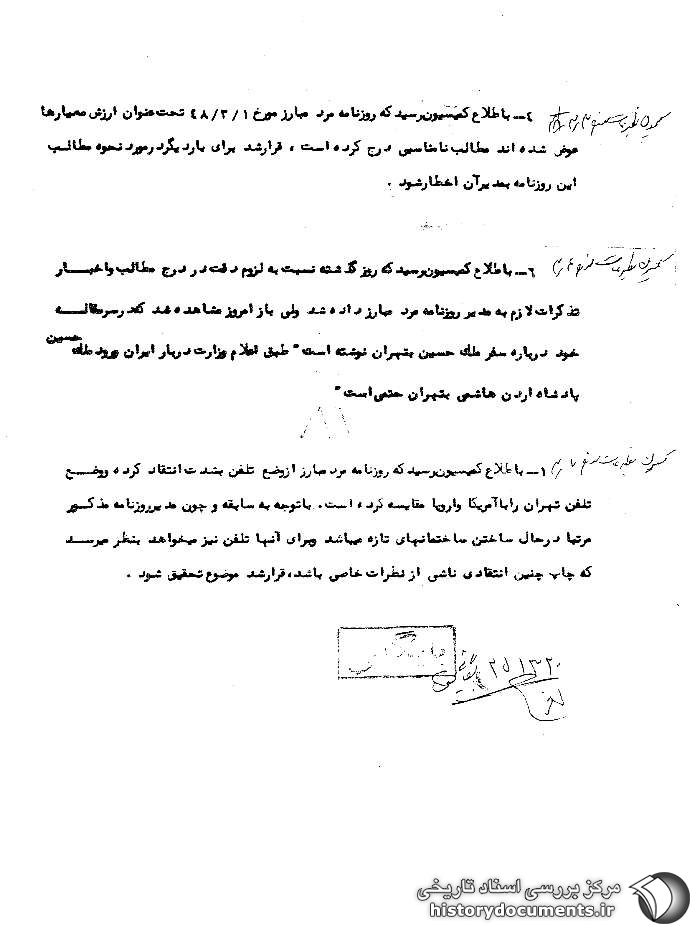 ٤ــ باطلاع کمیسیون رسید که روزنامه مرد مبارز مورخ ٤٨/٣/١ تحت عنوان ارزش معیارها
عوض شده اند مطالب نامناسبی درج کرده است ، قرارشد برای باردیگردرمورد نحوه مطالب
این روزنامه بمدیرآن اخطارشود .
٦ــ باطلاع کمیسیون رسید که روز گذشته نسبت به لزوم دقت در درج مطالب واخبار
تذکرات لازم به مدیر روزنامه مرد مبارز داده شد ولی باز امروز مشاهده شد که درسرمقاله
خود درباره سفر ملک حسین بتهران نوشته است " طبق اعلام وزارت دربار ایران ورود ملک حسین
پادشاه اردن هاشمی بتهران حتمی است "
١ــ باطلاع کمیسیون رسید که روزنامه مرد مبارز ازوضع تلفن بشدت انتقاد کرده ووضع
تلفن تهران راباآمریکا واروپا مقایسه کرده است. باتوجه به سابقه و چون مدیرروزنامه مذکور
مرتبا درحال ساختن ساختمانهای تازه میباشد وبرای آنها تلفن نیز میخواهد بنظر میرسد
که چاپ چنین انتقادی ناشی از نظرات خاصی باشد، قرارشد موضوع تحقیق شود .
مرکز بررسی اسناد تاریخی
historydocuments.ir